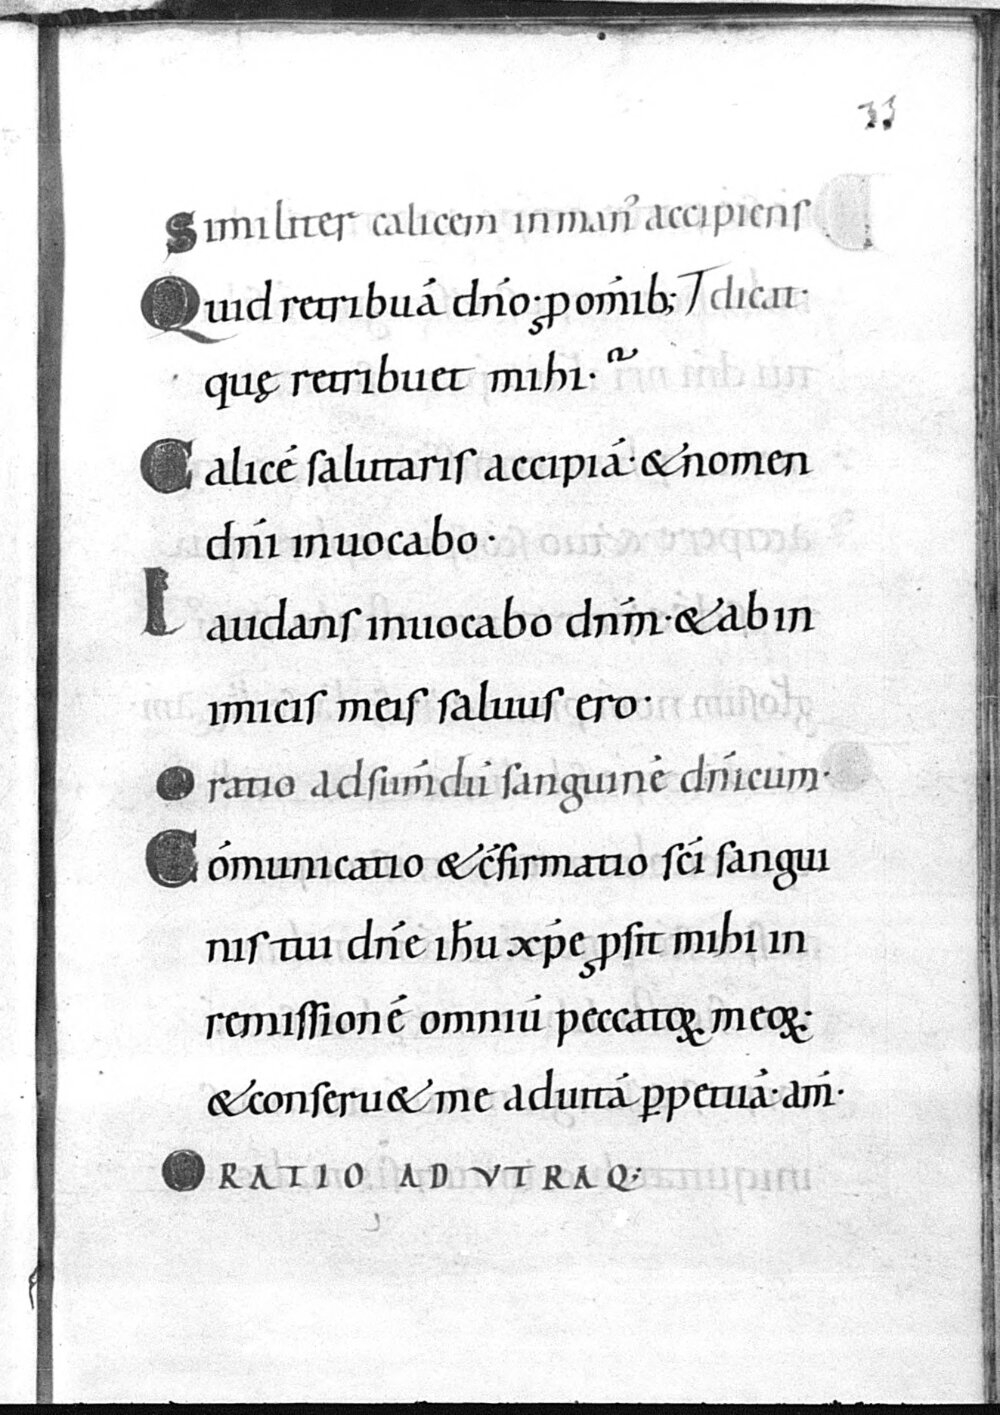 33
Similiter calicem in man᾽ accipiens
Quid retribuá dńo· ꝓ om̄ib; dicat·
quę retribuet mihi·
Calicé salutaris accipiá· & nomen
dńi inuocabo·
Laudans inuocabo dńm· & ab in
imicis meis saluus ero·
Oratio ad sum̄dú sanguiné dńicum·
Cómunicatio & c̄firmatio sc̄i sangui
nis tui dńe ihu̅ xp̄e ꝓsit mihi in
remissioné omniú peccatoꝝ meoꝝ·
& conseru& me ad uitá ꝑpetuá· am̄·
ORATIO AD VTRAQ;